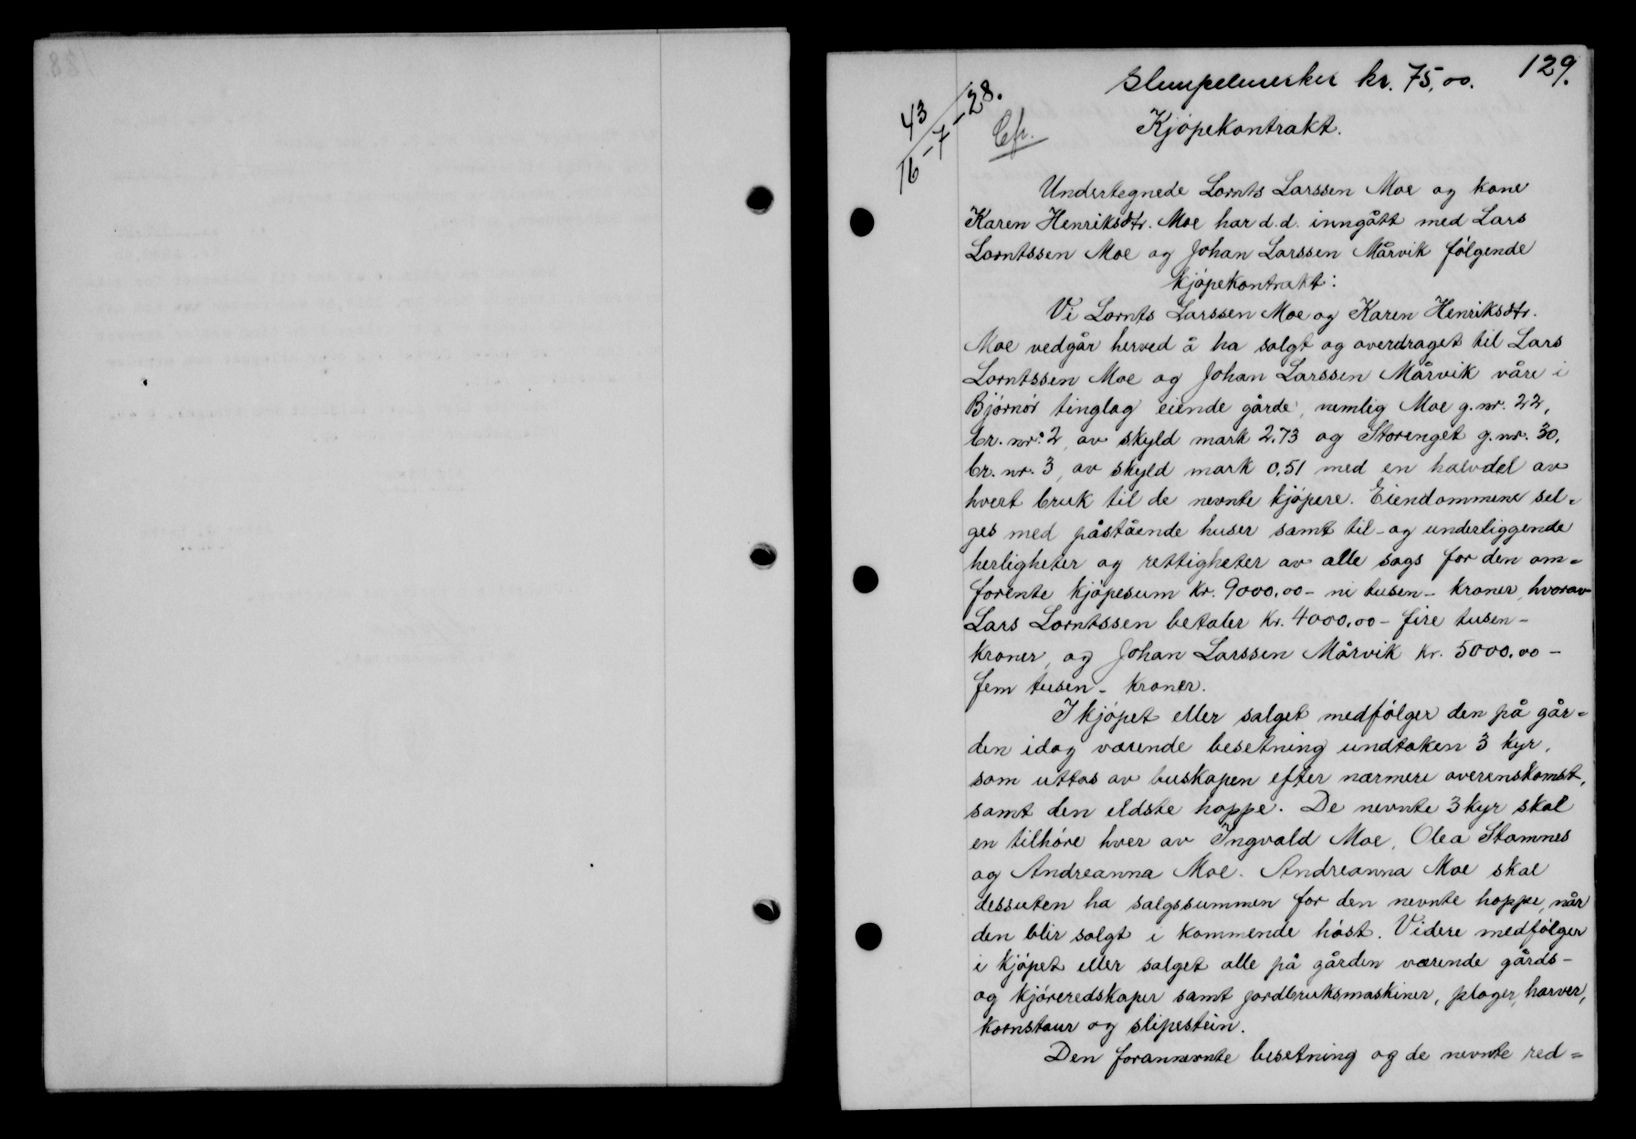 129.
Stempelmerker kr. 75,00.
43/16-7-28.
Cfr.
Kjøpekontrakt.
Undertegnede Lornts Larssen Moe og kone
Karen Henriksdtr. Moe har d.d. inngått med Lars
Lorntssen Moe og Johan Larssen Mårvik følgende
kjøpekontrakt:
Vi Lornts Larssen Moe og Karen Henriksdtr.
Moe vedgår herved å ha solgt og overdraget til Lars
Lorntssen Moe og Johan Larssen Mårvik våre i
Bjørnør tinglag eiende gårde, nemlig Moe g.nr. 22,
br. nr. 2, av skyld mark 2,73 og Storenget g.nr. 30,
br. nr. 3, av skyld mark 0,51 med en halvdel av
hvert bruk til de nevnte kjøpere. Eiendommene sel=
ges med påstående huser samt til- og underliggende
herligheter og rettigheter av alle sags for den om=
forente kjøpesum kr. 9000,00 - ni tusen - kroner, hvorav
Lars Lorntssen betaler kr. 4000,00 - fire tusen -
kroner, og Johan Larssen Mårvik kr. 5000,00 -
fem tusen - kroner.
I kjøpet eller salget medfølger den på går=
den idag værende besetning undtaken 3 kyr,
som uttas av buskapen efter nærmere overenskomst,
samt den eldste hoppe. De nevnte 3 kyr skal
en tilhøre hver av Ingvald Moe, Olea Stamnes
og Andreanna Moe. Andreanna Moe skal
dessuten ha salgssummen for den nevnte hoppe, når
den blir solgt i kommende høst. Videre medfølger
i kjøpet eller salget alle på gården værende gårds-
og kjøreredskaper samt jordbruksmaskiner, ploger, harver,
kornstaur og slipestein.
Den forannevnte besetning og de nevnte red=